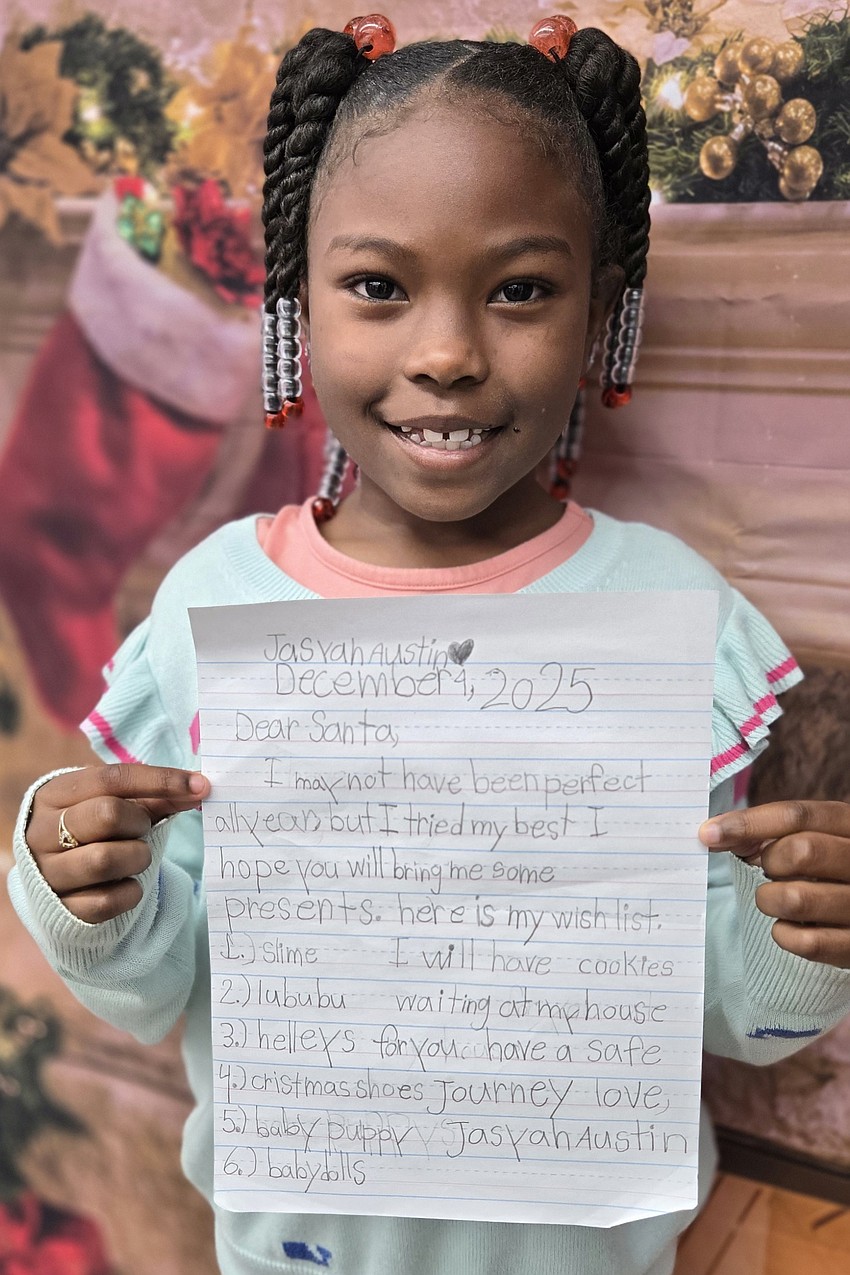 Jasyah Austin
December 4, 2025
Dear Santa,
I may not have been perfect
all year, but I tried my best I
hope you will bring me some
presents. here is my wish list.
1.) slime I will have cookies
2.) lububu waiting at my house
3.) helleys for you have a safe
4.) cristmas shoes Journey love,
5.) baby puppy Jasyah Austin
6.) baby dolls